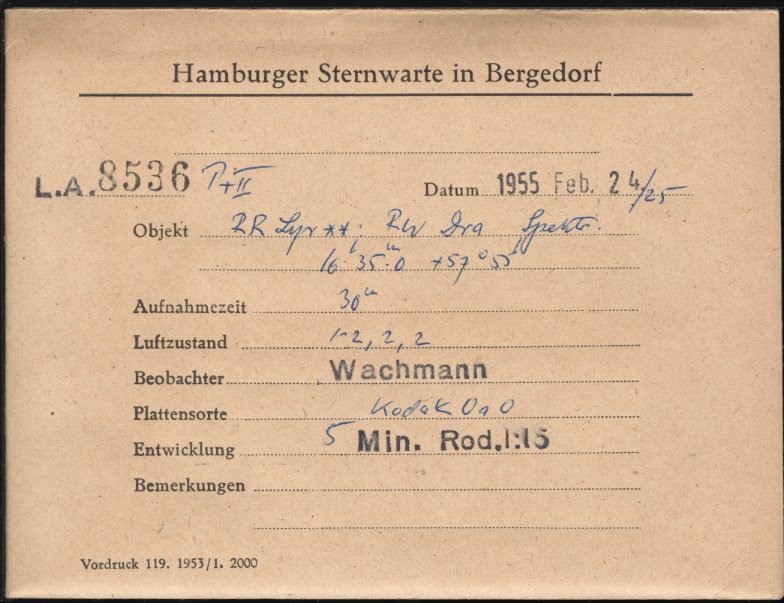 Hamburger Sternwarte in Bergedorf
L.A. 8536 P+II Datum 1955 Feb. 24/25
Objekt RR Lyr **: RW Dra Spektr.
16ʰ 35ᵐ.0 +57°55'
Aufnahmezeit 30ᵐ
Luftzustand 1-2, 2, 2
Beobachter Wachmann
Plattensorte Kodak OaO
Entwicklung 5 Min. Rod.1:15
Bemerkungen
Vordruck 119. 1953/1. 2000